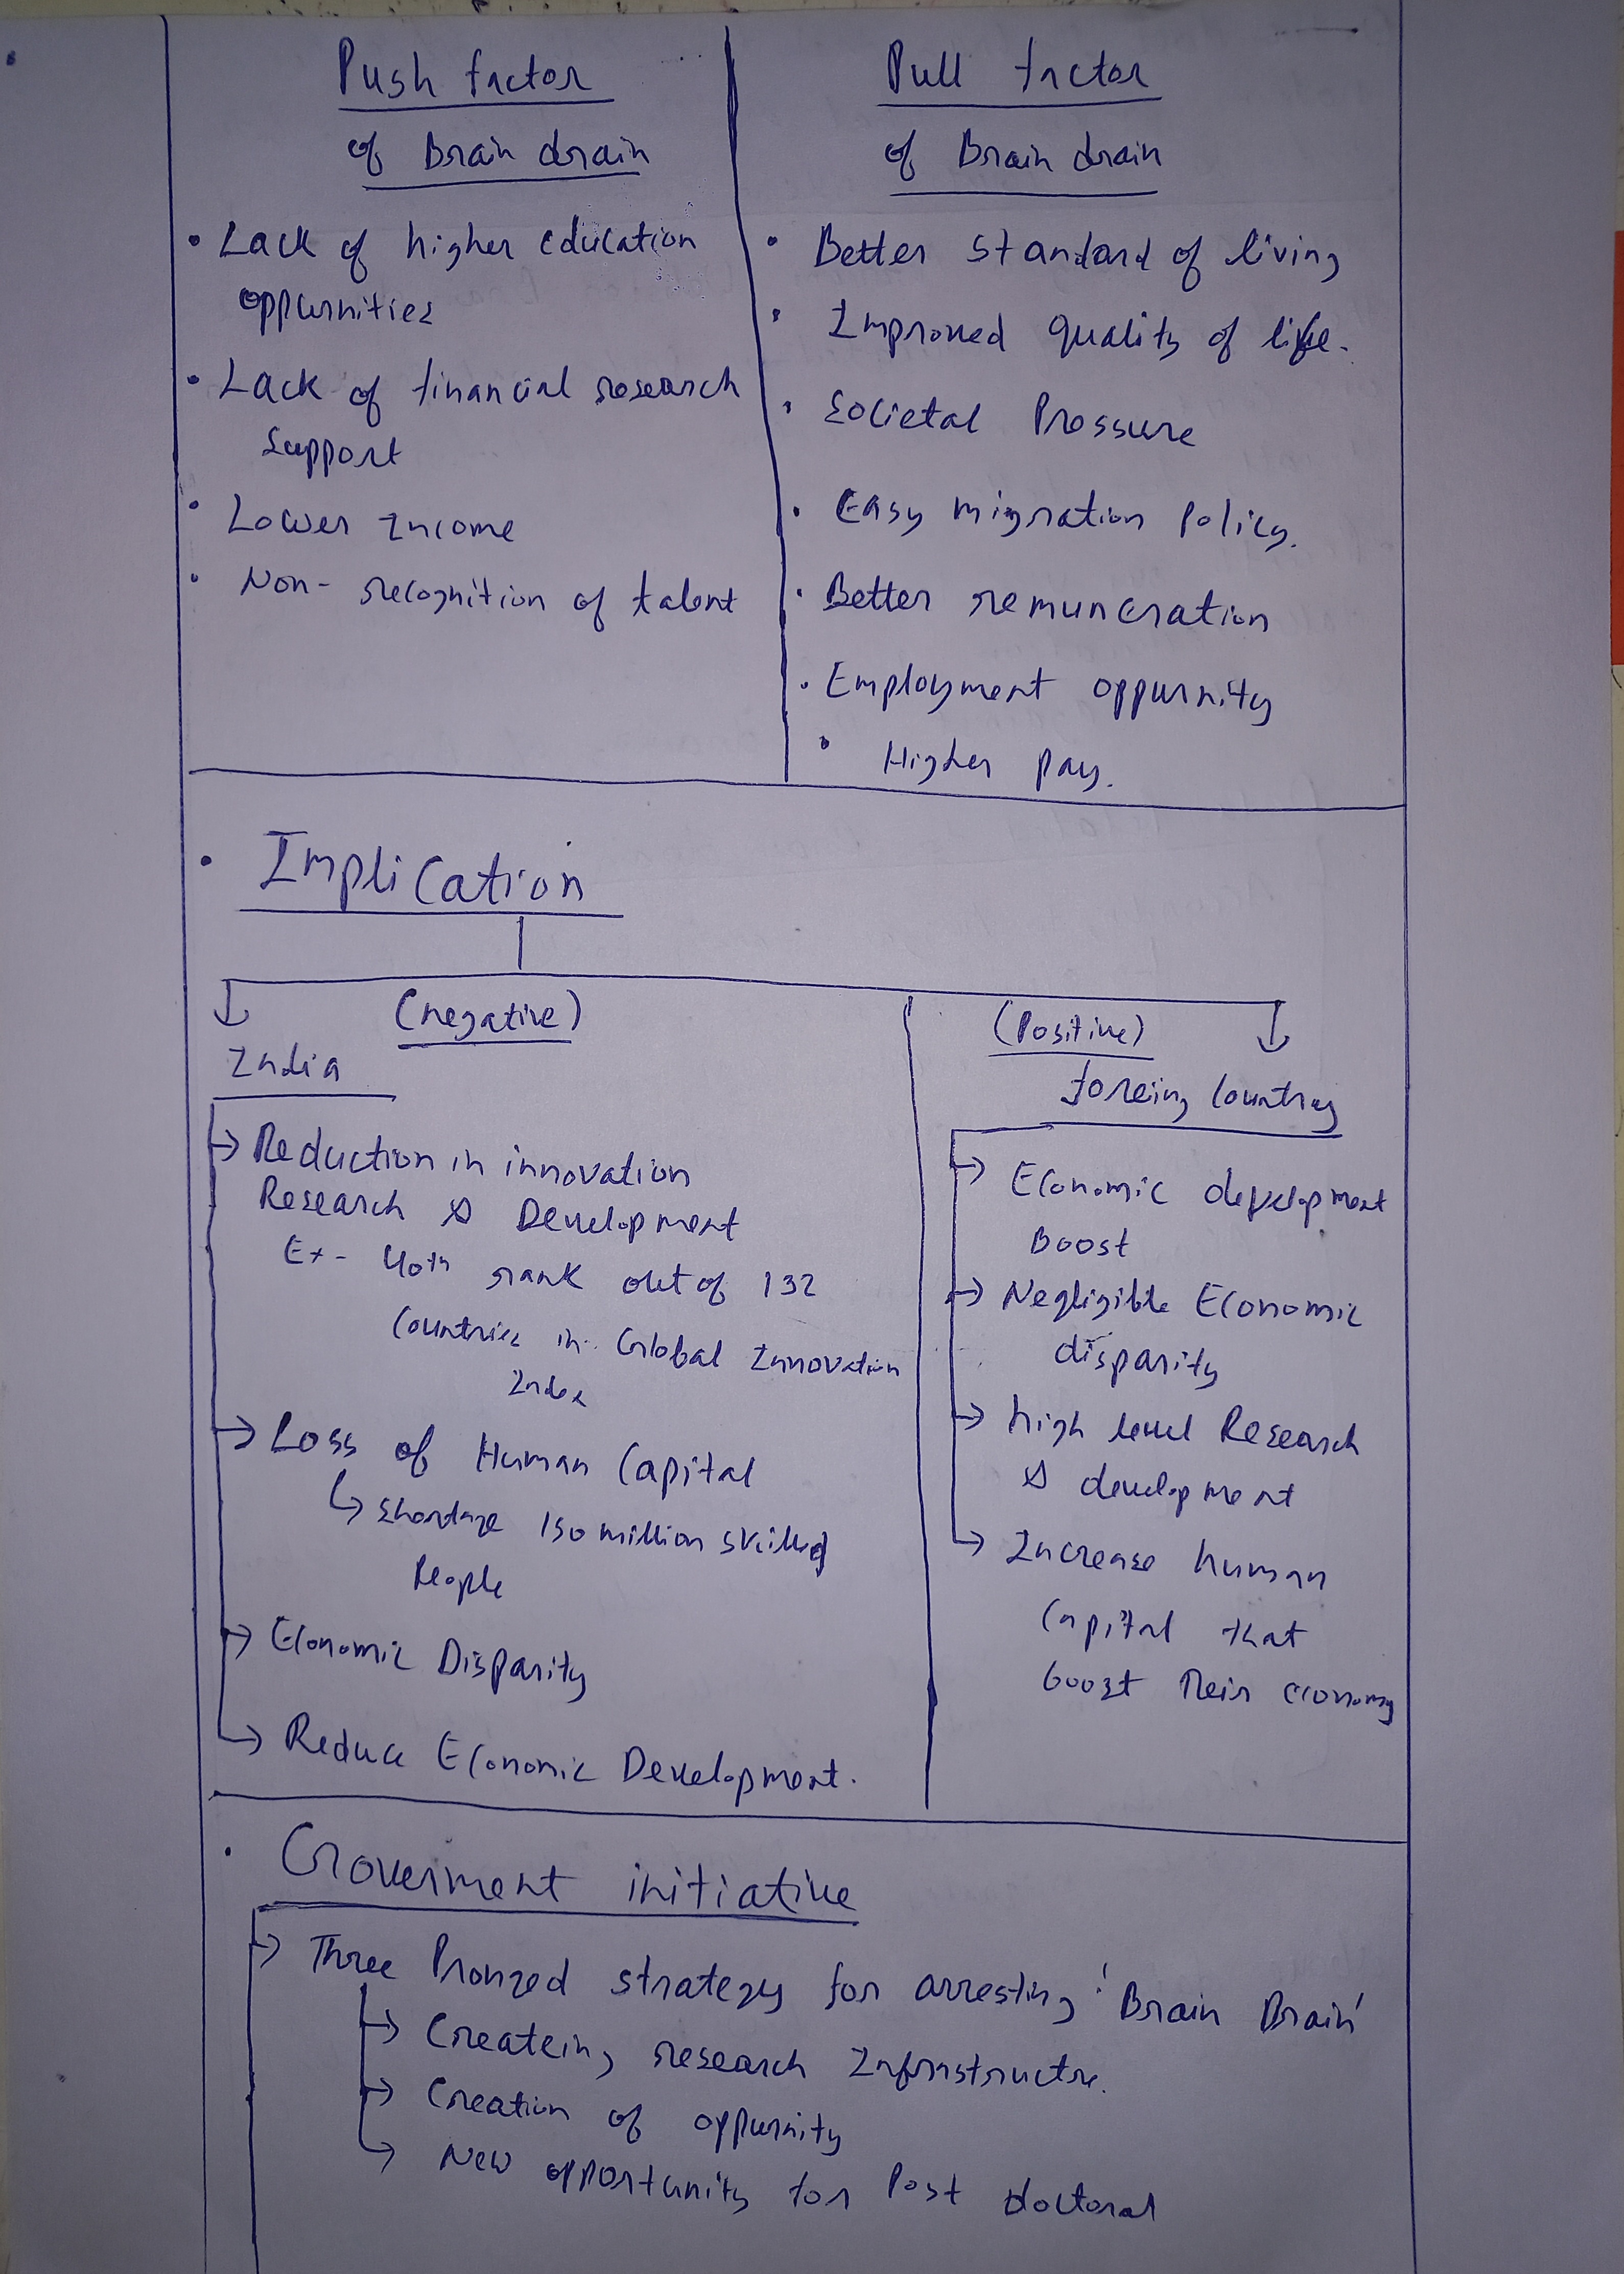 Push factor
of Brain drain
• Lack of higher education
oppurnities
• Lack of financial research
support
• Lower Income
• Non-recognition of talent
Pull factor
of Brain drain
• Better standard of living
• Improved quality of life.
• Societal Pressure
• Easy migration Policy.
• Better remuneration
• Employment oppurnity
• Higher pay.
• Implication
(negative)
India
→ Reduction in innovation
Research & Development
Ex- 40th rank out of 132
Countries in Global Innovation
Index
→ Loss of Human Capital
↳ Shortage 150 million skilled
People
→ Economic Disparity
→ Reduce Economic Development.
(Positive)
foreing Country
→ Economic development
Boost
→ Negligible Economic
disparity
→ high level Research
& development
→ Increase human
Capital that
boost their economy
• Goverment initiative
→ Three Pronged strategy for arresting 'Brain Brain'
→ Createing research Infrastructre.
→ Creation of oppurnity
→ New opportunity for Post doctoral